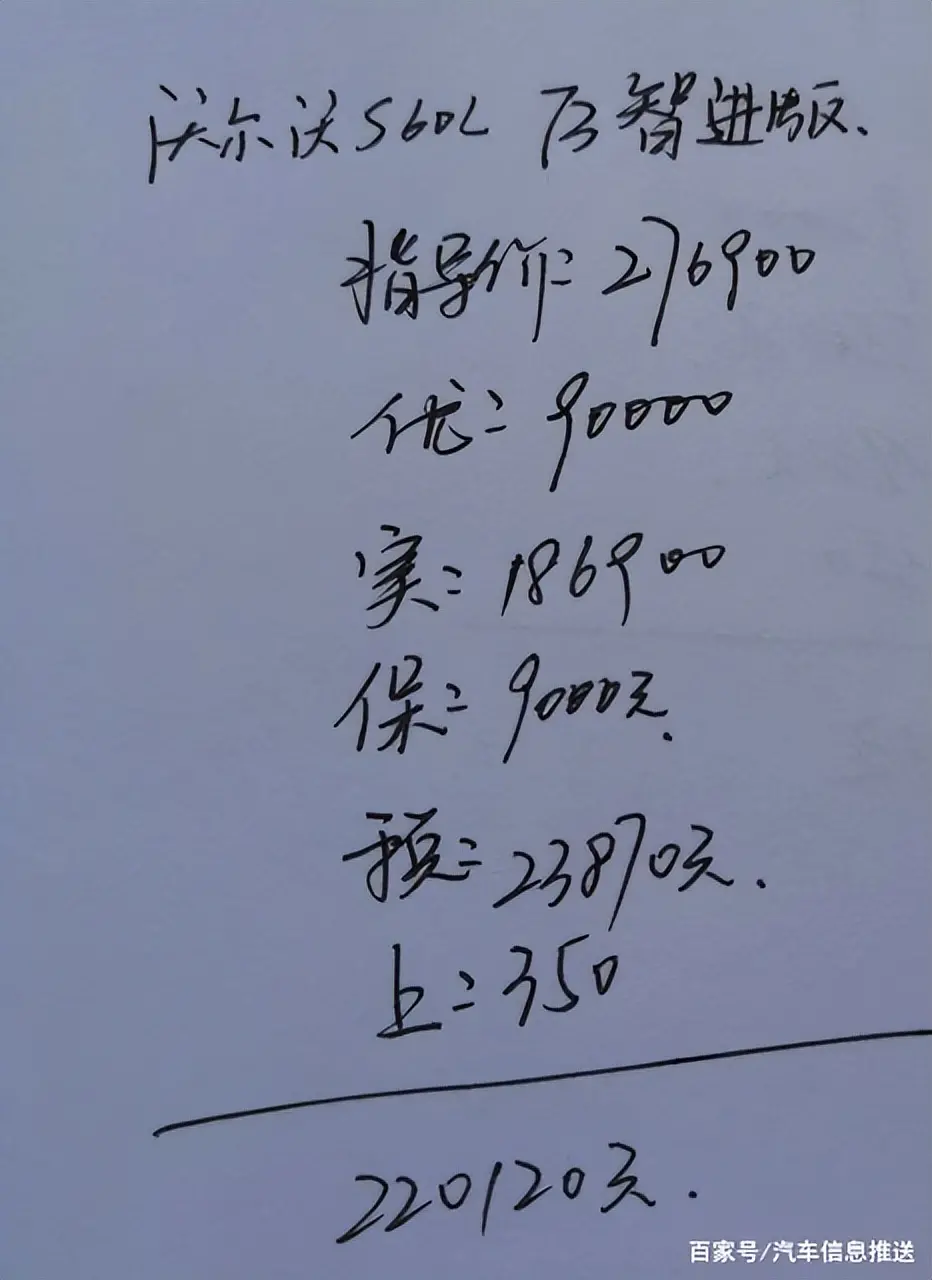 沃尔沃S60L B3智进版.
指导价: 276900
优: 90000
实: 186900
保: 9000元.
预: 23870元.
上: 350
220120元.
百家号/汽车信息推送